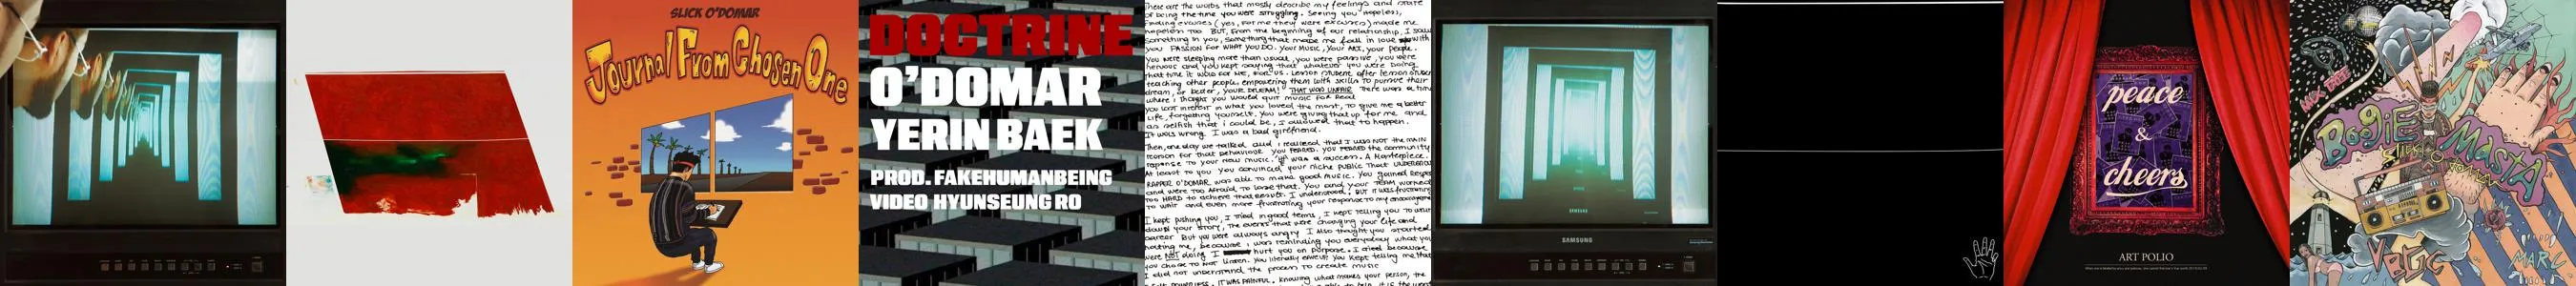 SLICK O'DOMAR
Journal From Chosen One
DOCTRINE
O'DOMAR
YERIN BAEK
PROD. FAKEHUMANBEING
VIDEO HYUNSEUNG RO
These are the words that mostly describe my feelings and state
of being the time you were struggling. Seeing you hopeless,
Finding excuses (yes, for me they were excuses) made me
hopeless too. BUT, from the beginning of our relationship, I saw
something in you, something that made me fall in love with
you PASSION FOR WHAT YOU DO. YOUR MUSIC, YOUR ART, your people.
You were sleeping more than usual, you were passive, you were
nervous and you kept saying that whatever you were doing
that time it was for ME, FOR US. Lesson student after lesson student
teaching other people, empowering them with skills to pursue their
dream, or better, YOUR DREAM! THAT WAS UNFAIR. There was a time
where I thought you would quit music for real
you lost interest in what you loved the most, to give me a better
life, forgetting yourself. You were giving that up for me and
as selfish that I could be, I allowed that to happen.
It was wrong. I was a bad girlfriend.
Then, one day we talked and I realised that I was NOT THE MAIN
reason for that behaviour. You FEARED. YOU FEARED the community
response to your new music. It was a success. A Masterpiece.
At least to you. You convinced your niche PUBLIC That UNDERGROUND
RAPPER O'DOMAR was able to make good music. You gained respect
and were too afraid to lose that. You and your TEAM worked
too HARD to achieve that result. I understood. BUT it was frustrating
to wait and even more frustrating your response to my encouragement
I kept pushing you, I tried in good terms, I kept telling you to write
down your story, the events that were changing your life and
career. But you were always angry. I also thought you started
hating me, because I was reminding you everyday what you
were NOT doing. I hurt you on purpose. I cried because
you chose to NOT listen. You literally envied! You kept telling me that
I did not understand the process to create music
I felt POWERLESS. IT WAS PAINFUL. Knowing what makes your person, the
SAMSUNG
SAMSUNG
peace
&
cheers
ART POLIO
MIX BY
BOOGIE
MASTA
SLICK O'DOMAR
MARC